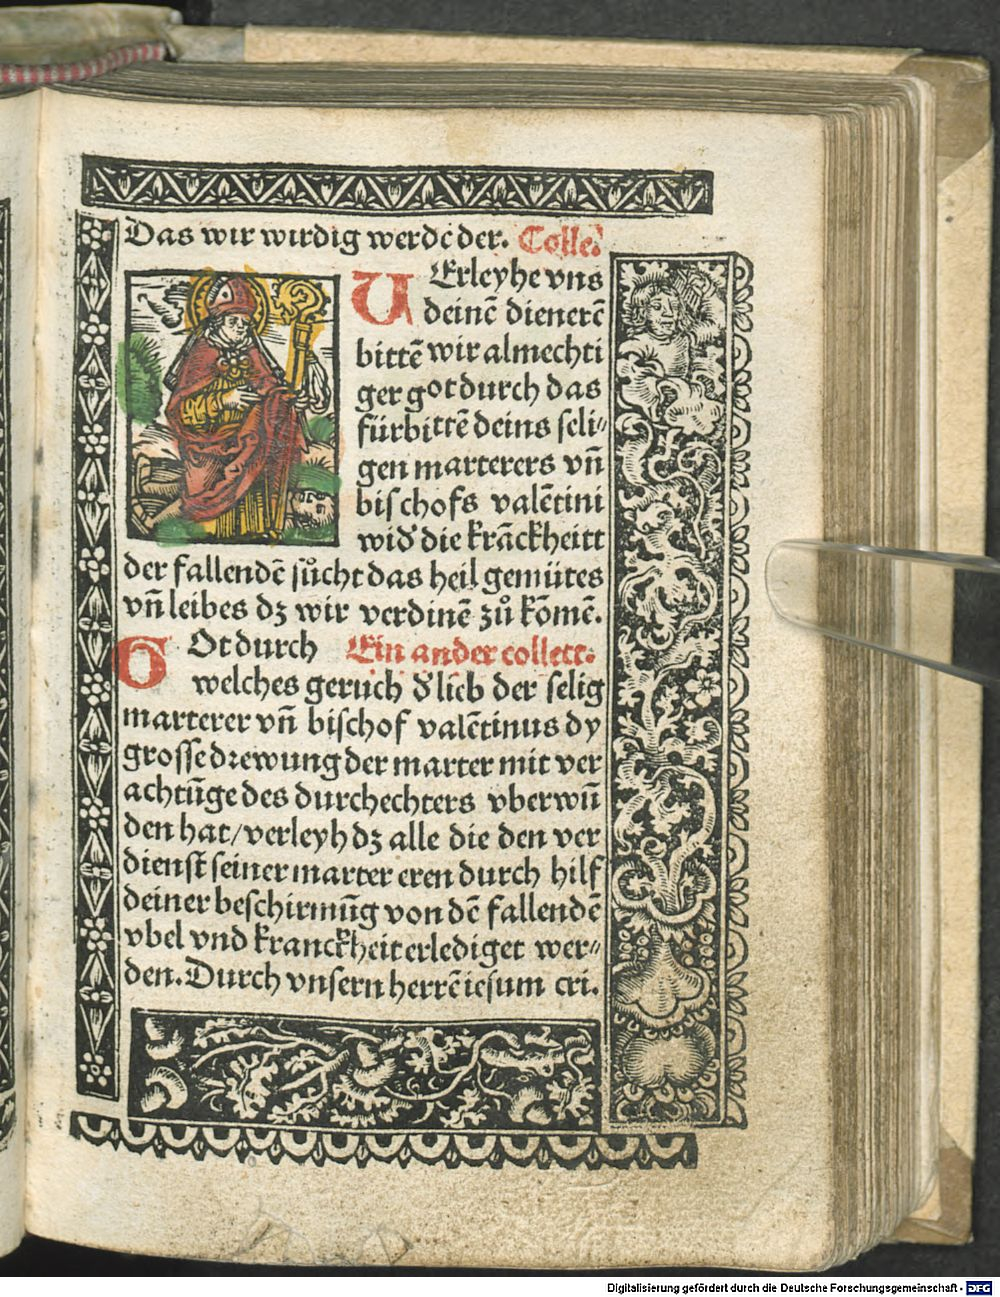 Das wir wirdig werdē der. Colle.
VErleyhe vns
deinē dienerē
bittē wir almechti
ger got durch das
fürbittē deins seli⸗
gen marterers vñ
bischofs valētini
wid̕ die krāckheitt
der fallendē sůcht das heil gemütes
vñ leibes dz wir verdinē zů kōmē.
GOt durch Ein ander collect.
welches geruch d̕ lieb der selig
marterer vñ bischof valētinus dy
grosse drewung der marter mit ver
achtūge des durchechters vberwū
den hat/ verleyh dz alle die den ver
dienst seiner marter eren durch hilf
deiner beschirmūg von dē fallendē
vbel vnd kranckheit erlediget wer⸗
den. Durch vnsern herrē iesum cri.
Digitalisierung gefördert durch die Deutsche Forschungsgemeinschaft - DFG